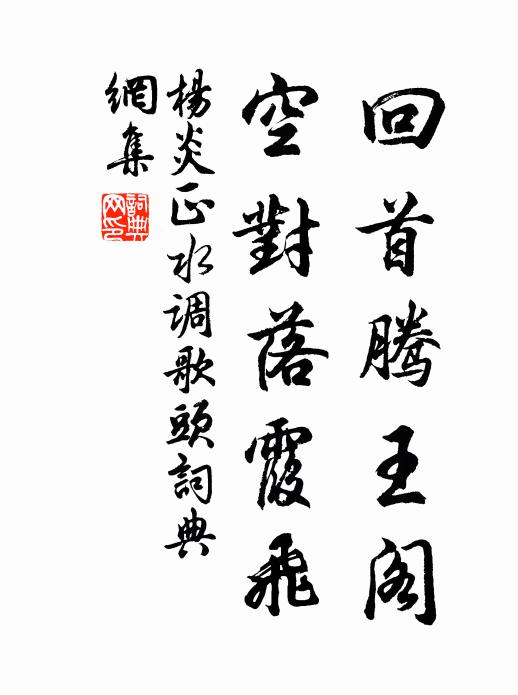 回首騰王阁
空對落霞飛
楊炎正水调歌頭詞典
網集
詞典网印